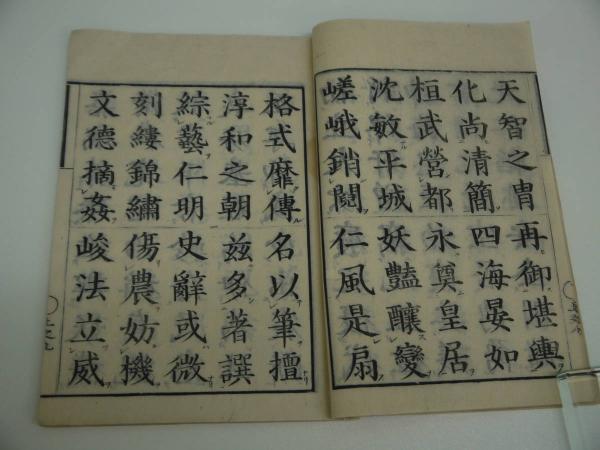 天智之胄再御堪輿
化尚清簡四海晏如
桓武營都永奠皇居
沈敏平城妖豔釀變
嵯峨銷閼仁風是扇
格式靡傳名以筆擅
淳和之朝茲多著譔
綜藝仁明史辭或微
刻縷錦繡傷農妨機
文德摘姦峻法立威